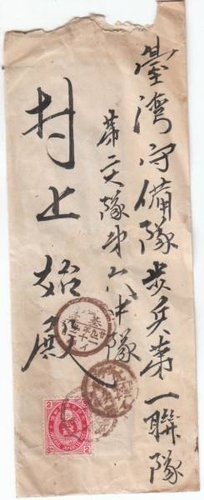 臺湾守備隊歩兵第一聯隊
第二大隊第六中隊
村上始